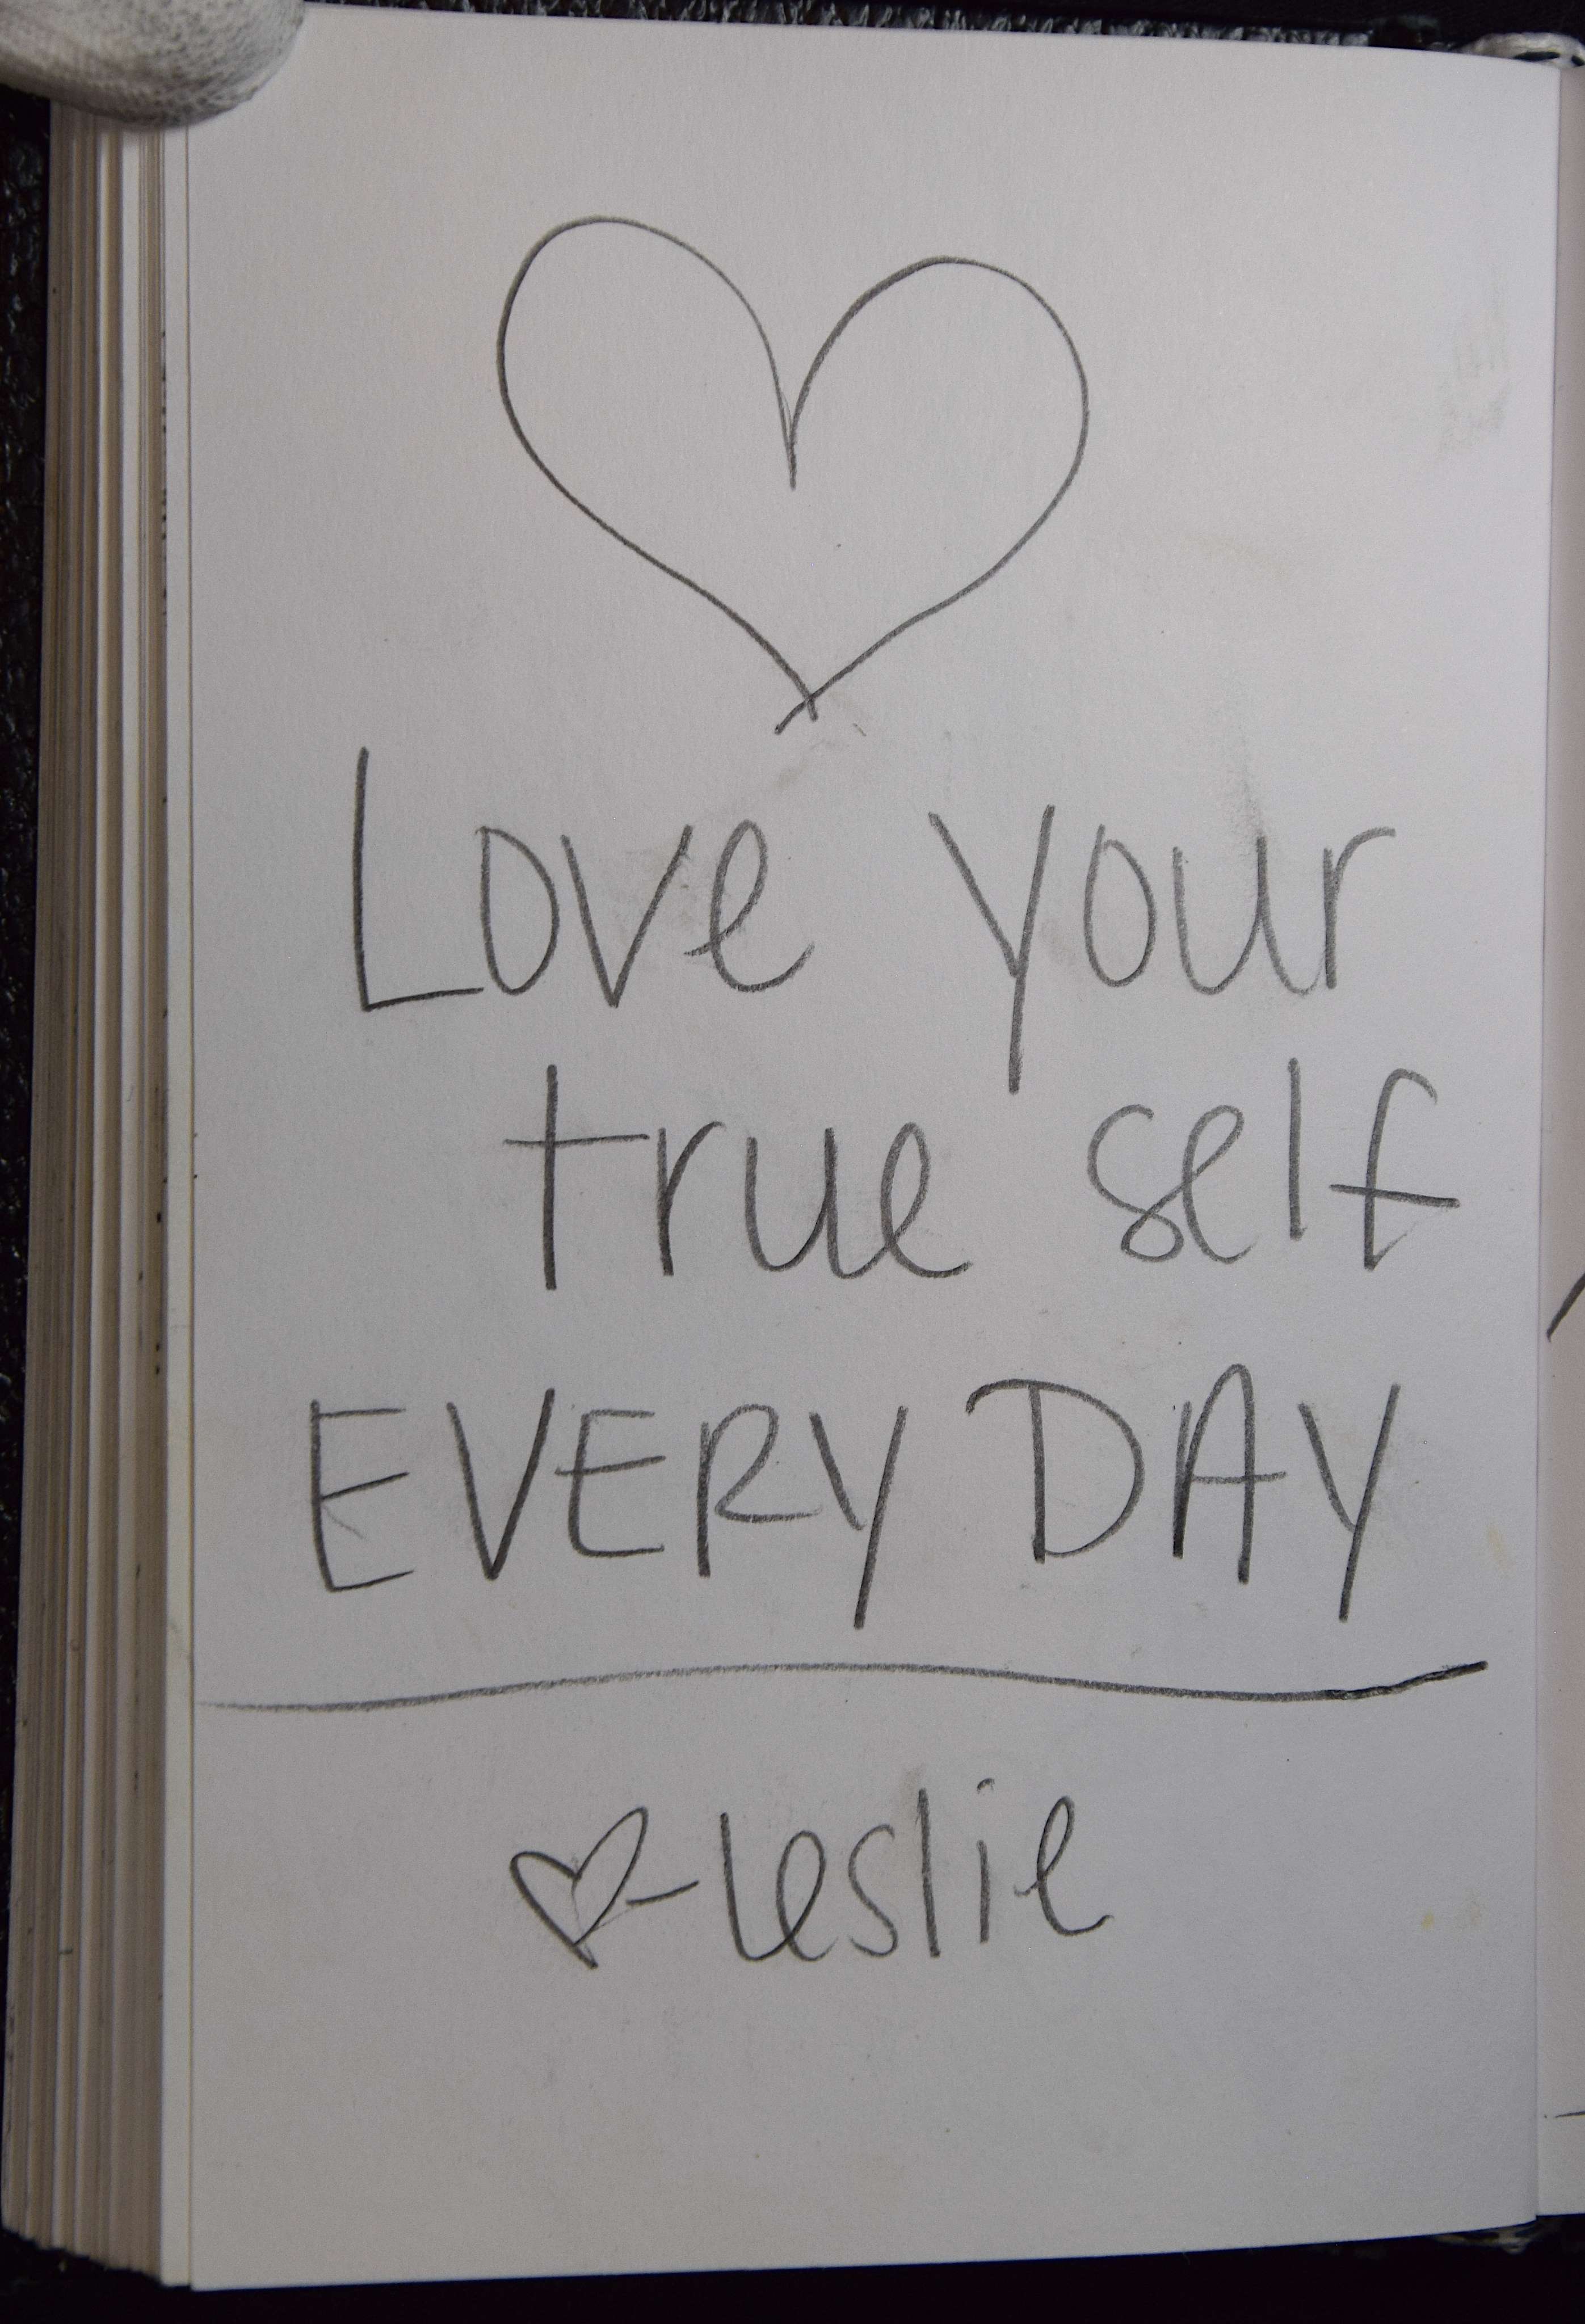 Love your
true self
EVERY DAY
♡-leslie